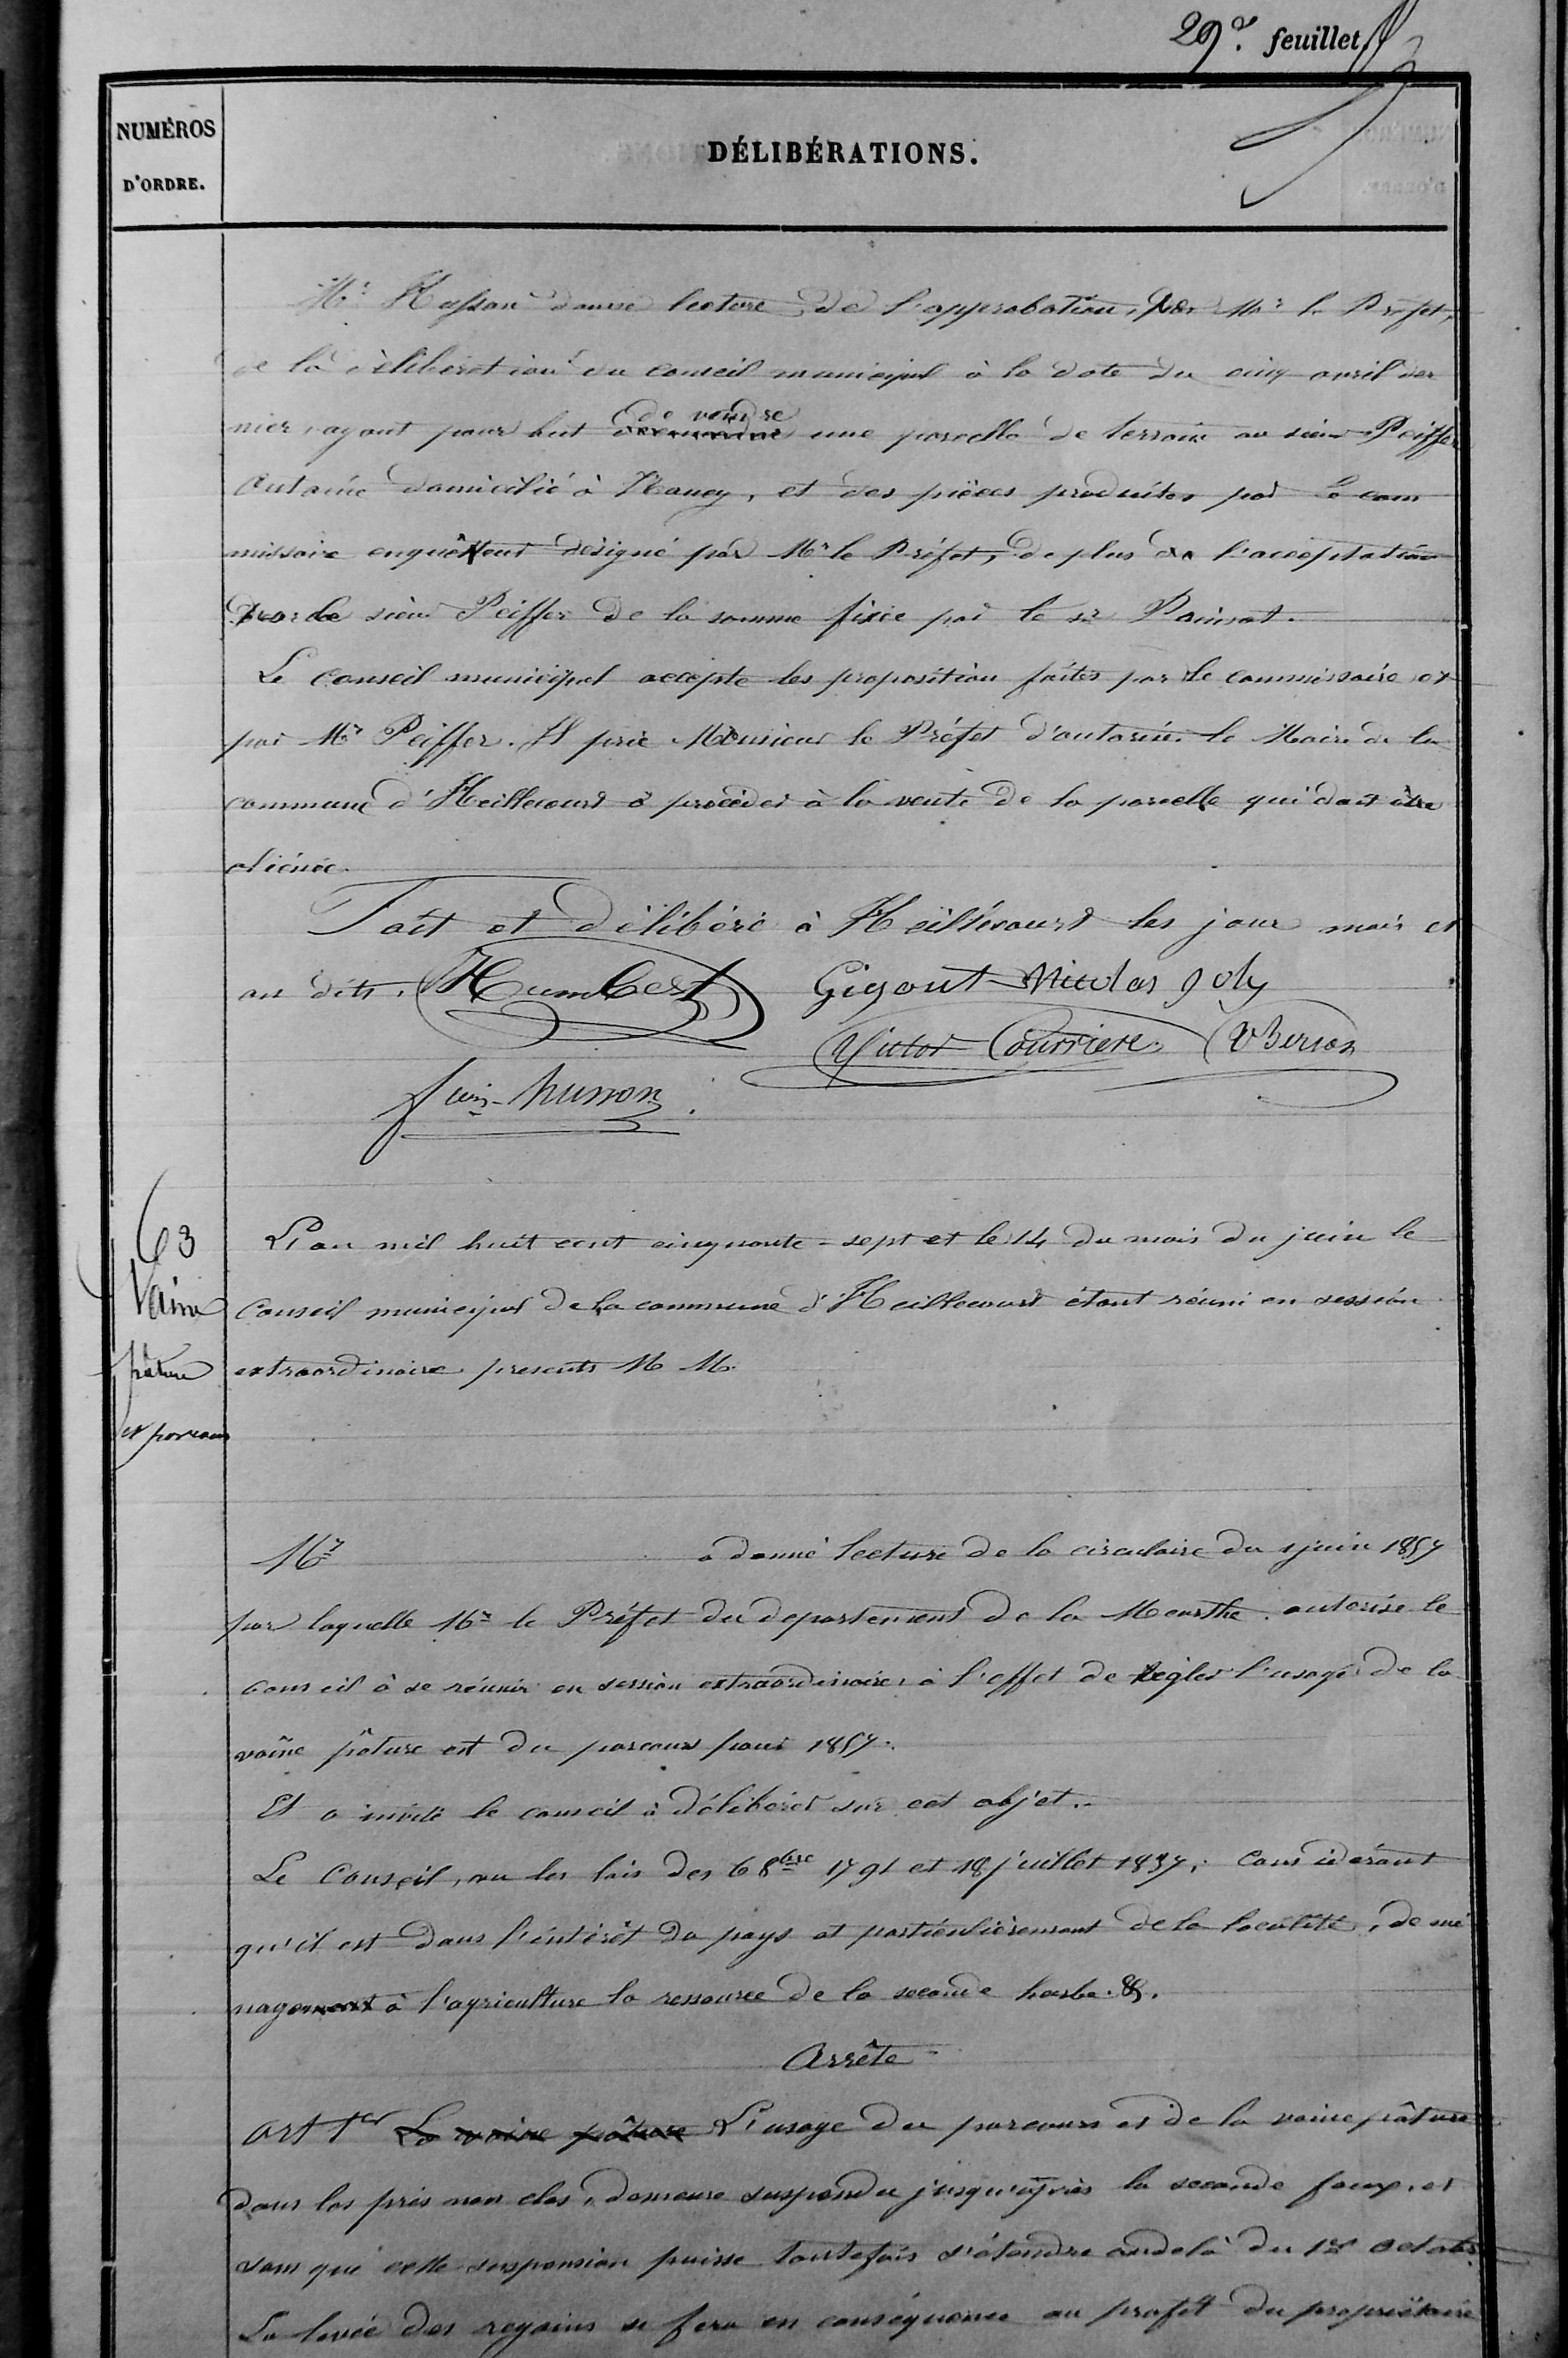 29e. feuillet
NUMÉROS
D'ORDRE.
DÉLIBÉRATIONS.
Mr Husson donne lecture de l'approbation, par Mr le Préfet,
de la délibération du conseil municipal à la date du cinq avril der
nier, ayant pour but de vendre une parcelle de terrain au sieur Peiffer
Antoine domicilié à Nancy, et des pièces produites par le com
missaire enquêteur désigné par Mr le Préfet, de plus de l'acceptation
par le sieur Peiffer de la somme fixée par le sr
Le conseil municipal accepte les proposition faites par le commissaire et
par Mr Peiffer. Il prie Monsieur le Préfet d'autoriser le Maire de la
commune d'Heillecourt à procéder à la vente de la parcelle qui doit être
aliénée.
Fait et délibéré à Heillecourt les jour mois et
an dits. Humbert Gigout Nicolas Joly
Victor Courriere V Berson
husson
63
Vaine
pâture
et parcours
L'an mil huit cent cinquante-sept et le 14 du mois du juin le
Conseil municipal de la commune d'Heillecourt étant réuni en session
extraordinaire presents M M.
Mr a donné lecture de la circulaire du 1 juin 1857
par laquelle Mr le Préfet du departement de la Meurthe autorise le
conseil à se réunir en session extraordinaire, à l'effet de régler l'usage de la
vaine pâture et du parcours pour 1857.
Et a invité le conseil à délibérer sur cet objet.
Le Conseil, vu les lois des 6 8bre 1791 et 18 juillet 1837; considérant
qu'il est dans l'intérêt du pays et particulièrement de la localité, de mé
nagement à l'agriculture la ressource de la seconde herbe. &.
Arrête
Art 1er La vaine pâture L'usage du parcours et de la vaine pâture
dans les prés non clos, demeure suspendu jusqu'après la seconde faux, et
sans que cette suspension puisse toutefois s'étendre audelà du 1er octobre.
La levée des regains se fera en conséquence au profit du propriétaire